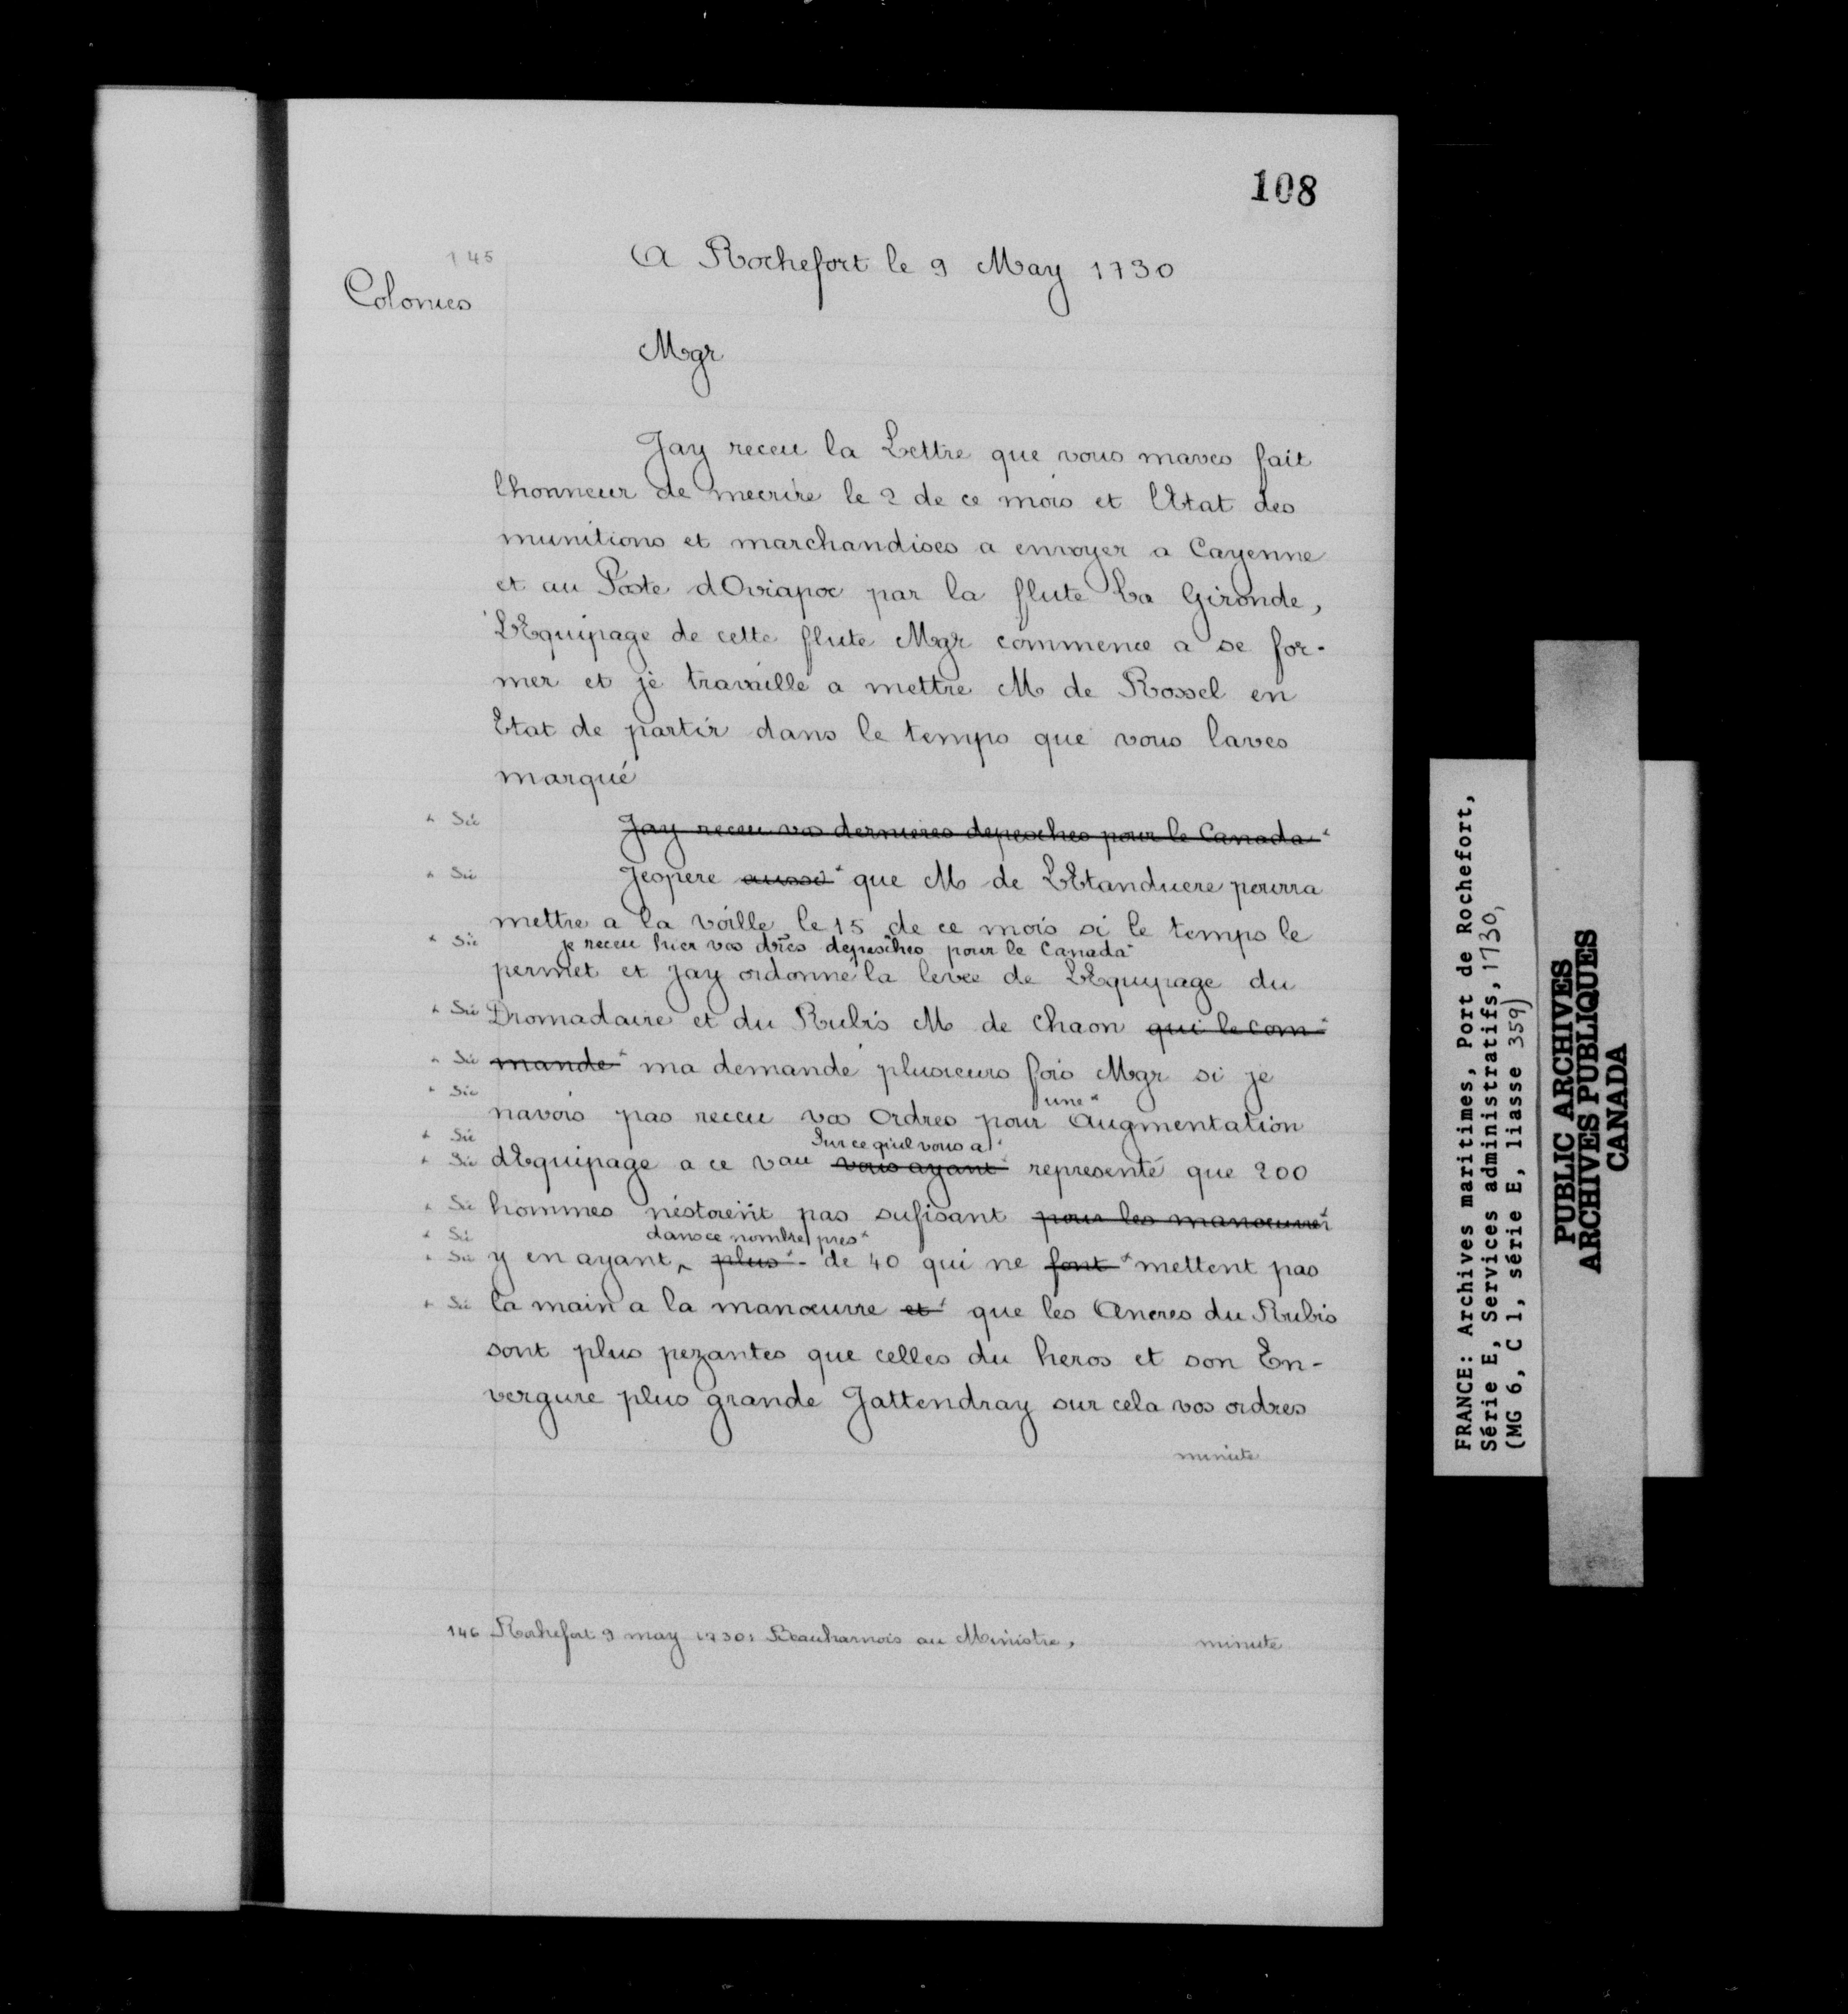 108
145
A Rochefort le 9 May 1730
Colonies
Mgr
Jay receu la Lettre que vous maves fait
lhonneur de mecrire le 2 de ce mois et lEtat des
munitions et marchandises a envoyer a Cayenne
et au Poste dOviapoc par la flute La Gironde,
LEquipage de cette flute Mgr commence a se for-
mer et je travaille a mettre M de Rossel en
Etat de partir dans le temps que vous laves
marqué
* Sic Jay receu vos dernieres depesches pour le Canada *
* Sic Jespere aussi * que M de LEtanduere pourra
mettre a la voille le 15 de ce mois si le temps le
* Sic je receu hier vos dres depesches pour le Canada *
permet et jay ordonné la levée de LEquipage du
* Sic Dromadaire et du Rubis M de Chaon qui le com- *
* Sic mande * ma demandé plusieurs fois Mgr si je
* Sic une *
navois pas receu vos Ordres pour Augmentation
* Sic Sur ce qu'il vous a *
* Sic dEquipage a ce vau vous ayant * representé que 200
* Sic hommes n'estoient pas sufisant pour les manœuvres *
* Sic dans ce nombre pres *
* Sic y en ayant plus * de 40 qui ne font * mettent pas
* Sic la main a la manœuvre et * que les Ancres du Rubis
sont plus pezantes que celles du heros et son En-
vergure plus grande Jattendray sur cela vos ordres
minute
146 Rochefort 9 may 1730: Beauharnois au Ministre, minute
FRANCE: Archives maritimes, Port de Rochefort,
Série E, Services administratifs, 1730,
(MG 6, C 1, série E, liasse 359)
PUBLIC ARCHIVES
ARCHIVES PUBLIQUES
CANADA